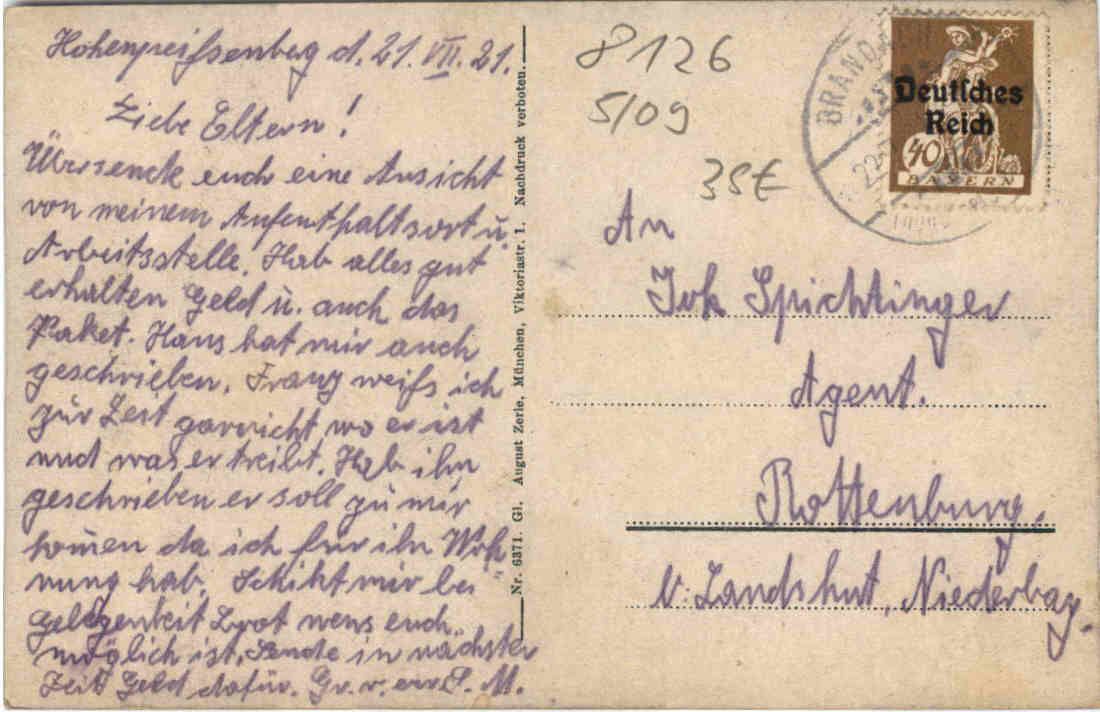 Hohenpeißenberg d. 21. VII. 21.
Liebe Eltern!
Übersende euch eine Ansicht
von meinem Aufenthaltsort u.
Arbeitsstelle. Hab alles gut
erhalten Geld u. auch das
Paket. Hans hat mir auch
geschrieben. Franz weiß ich
zur Zeit garnicht wo er ist
und was er treibt. Hab ihm
geschrieben er soll zu mir
kom̄en da ich für ihn Woh
nung hab. Schikt mir bei
Gelegenheit Brot wens euch
möglich ist. Sende in nächster
Zeit Geld dafür. Gr. v. S. M.
Nr. 6371. Gl. August Zerle, München, Viktoriastr. 1. Nachdruck verboten.
8126
5/09
35€
BRAND
22
Deutsches
Reich
40
BAYERN
An
Spichtinger
Agent.
Rottenburg,
b. Landshut, Niederbay.